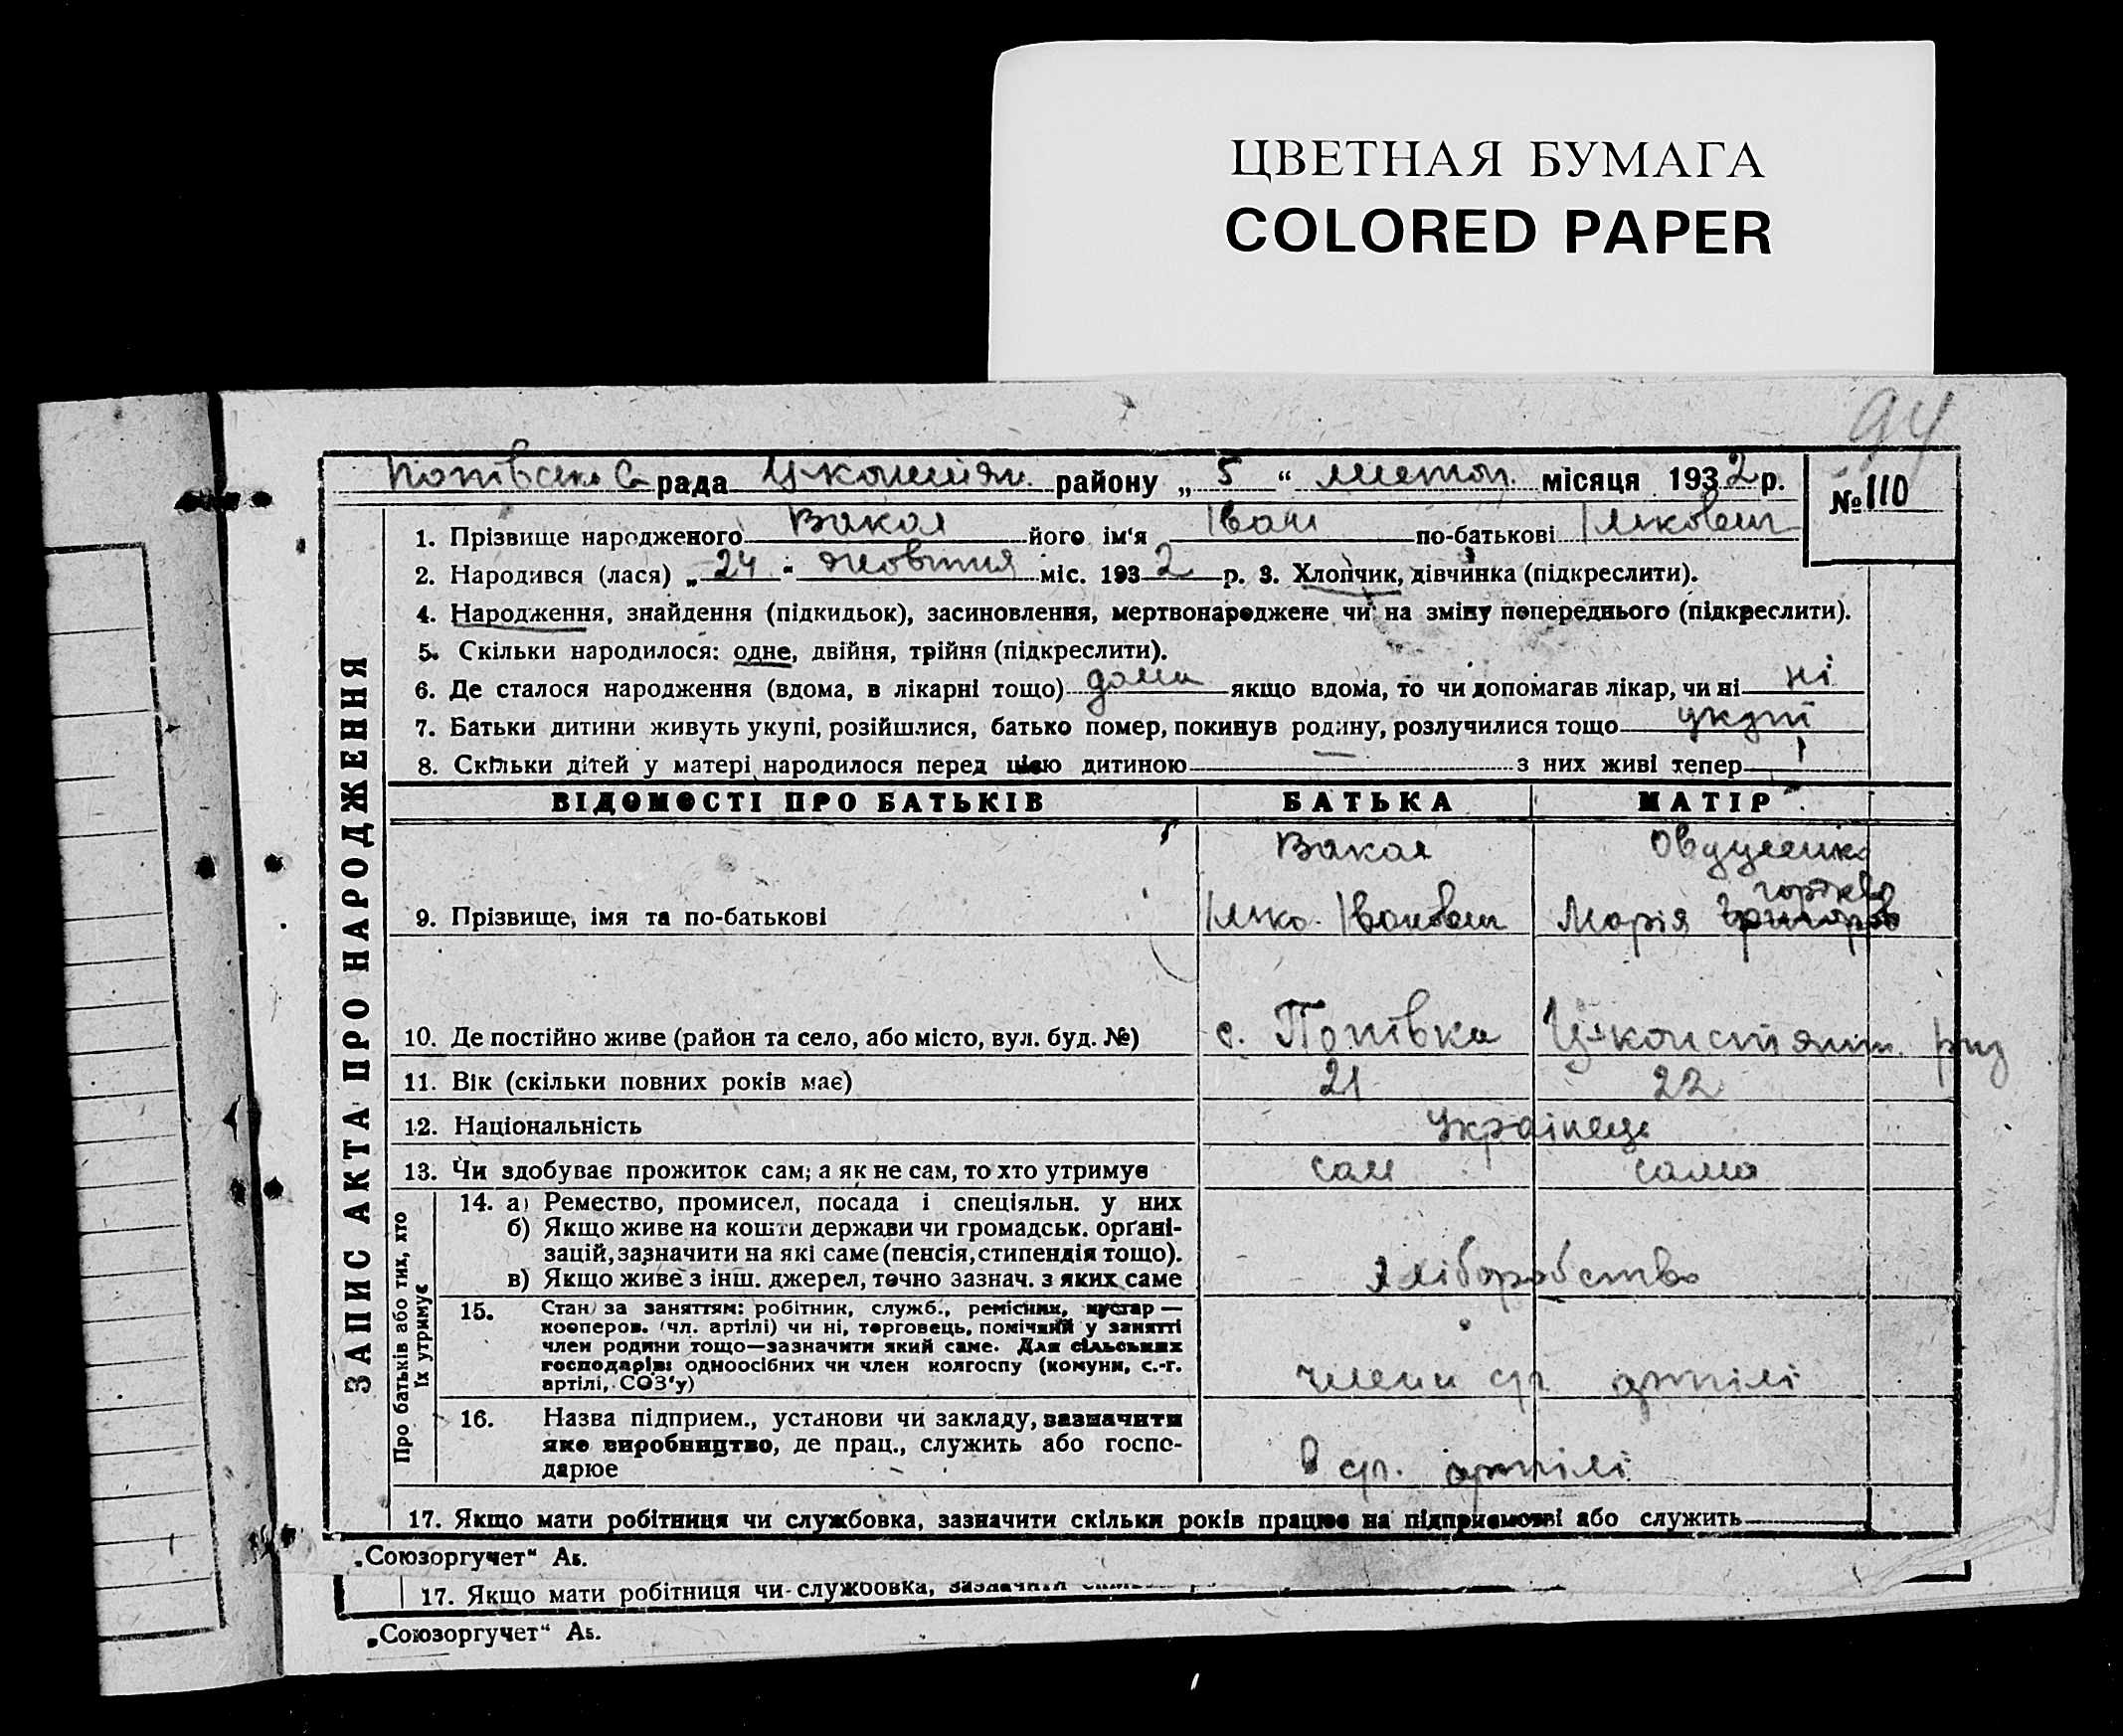 ЦВЕТНАЯ БУМАГА
COLORED PAPER
94
Попівська С рада Ц-констян. району „ 5 “ листоп. місяця 1932 р. №110
1. Прізвище народженого Вакал його ім'я Іван по-батькові Ількович
2. Народився (лася) „ 24 “ жовтня міс. 1932 р. 3. Хлопчик, дівчинка (підкреслити).
4. Народження, знайдення (підкидьок), засиновлення, мертвонароджене чи на зміну попереднього (підкреслити).
5. Скільки народилося: одне, двійня, трійня (підкреслити).
6. Де сталося народження (вдома, в лікарні тощо) дома якщо вдома, то чи допомагав лікар, чи ні ні
7. Батьки дитини живуть укупі, розійшлися, батько помер, покинув родину, розлучилися тощо укупі
8. Скільки дітей у матері народилося перед цією дитиною — з них живі тепер
ЗАПИС АКТА ПРО НАРОДЖЕННЯ
ВІДОМОСТІ ПРО БАТЬКІВ БАТЬКА МАТІР
Вакал
9. Прізвище, імя та по-батькові Ілько Іванович Марія
10. Де постійно живе (район та село, або місто, вул. буд. №) с. Попівка Ц-констянт. р-ну
11. Вік (скільки повних років має) 21 22
12. Національність Українець
13. Чи здобуває прожиток сам; а як не сам, то хто утримує сам сама
Про батьків або тих, хто їх утримує
14. а) Ремество, промисел, посада і спеціяльн. у них
б) Якщо живе на кошти держави чи громадськ. орґані-
зацій, зазначити на які саме (пенсія, стипендія тощо).
в) Якщо живе з інш. джерел, точно зазнач. з яких саме хліборобство
15. Стан за заняттям: робітник, служб., ремісник, кустар —
кооперов. (чл. артілі) чи ні, торговець, помічний у занятті
член родини тощо—зазначити який саме. Для сільських
господарів: одноосібних чи член колгоспу (комуни, с.-г.
артілі, СОЗ'у) члени с/г артілі
16. Назва підприєм., установи чи закладу, зазначити
яке виробництво, де прац., служить або госпо-
дарює В с/г. артілі
17. Якщо мати робітниця чи службовка, зазначити скільки років працює на підприємстві або служить
„Союзоргучет“ А5.
17. Якщо мати робітниця чи службовка, зазначити
„Союзоргучет“ А5.